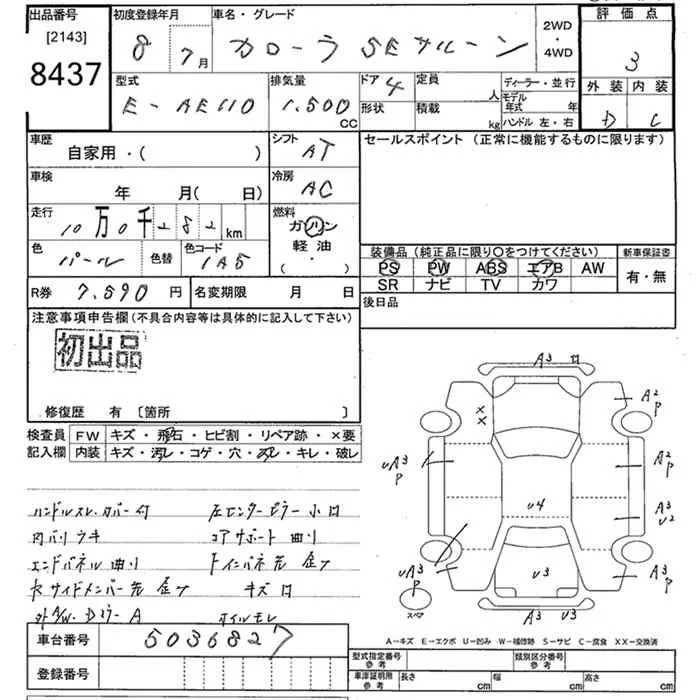 出品番号 初度登録年月 車名・グレード 2WD・4WD 評価点
[2143]
8437
8 7月 カローラ SEサルーン 3
型式 排気量 ドア 定員 ディーラー・並行 外装 内装
E-AE110 1.500 CC 4 人 モデル年式 年
形状 積載 kg ハンドル 左・右 D C
車歴 シフト セールスポイント (正常に機能するものに限ります)
自家用・( ) AT
車検 冷房
年 月(日) AC
走行 燃料
10万0千282km ガソリン
軽油
( ・ )
色 色替 色コード
パール 1A5
装備品 (純正品に限り〇をつけてください) 新車保証書
PS PW ABS エアB AW 有・無
SR ナビ TV カワ
R券 7.590円 名変期限 月 日 後日品
注意事項申告欄(不具合内容等は具体的に記入して下さい)
初出品
修復歴 有 [箇所 ]
検査員 FW キズ・飛石・ヒビ割・リペア跡・×要
記入欄 内装 キズ・汚レ・コゲ・穴・スレ・キレ・破レ
ハンドルスレ.カバー付 左センターピラー小凹
内バリウキ コアサポート曲り
エンドパネル曲り トインパネ先
サイドメンバー先 キズ凹
A オイルモレ
A3
A2
P
××
uA3
P
A2
P
u4
A3
u2
uA3
P
u3
スペア
A3 u3
A-キズ E-エクボ U-凹み W-補修跡 S-サビ C-腐食 XX-交換済
車台番号 5036827
登録番号
型式指定番号 参考 類別区分番号 参考
車庫証明用 参考 長さ cm 幅 cm 高さ cm